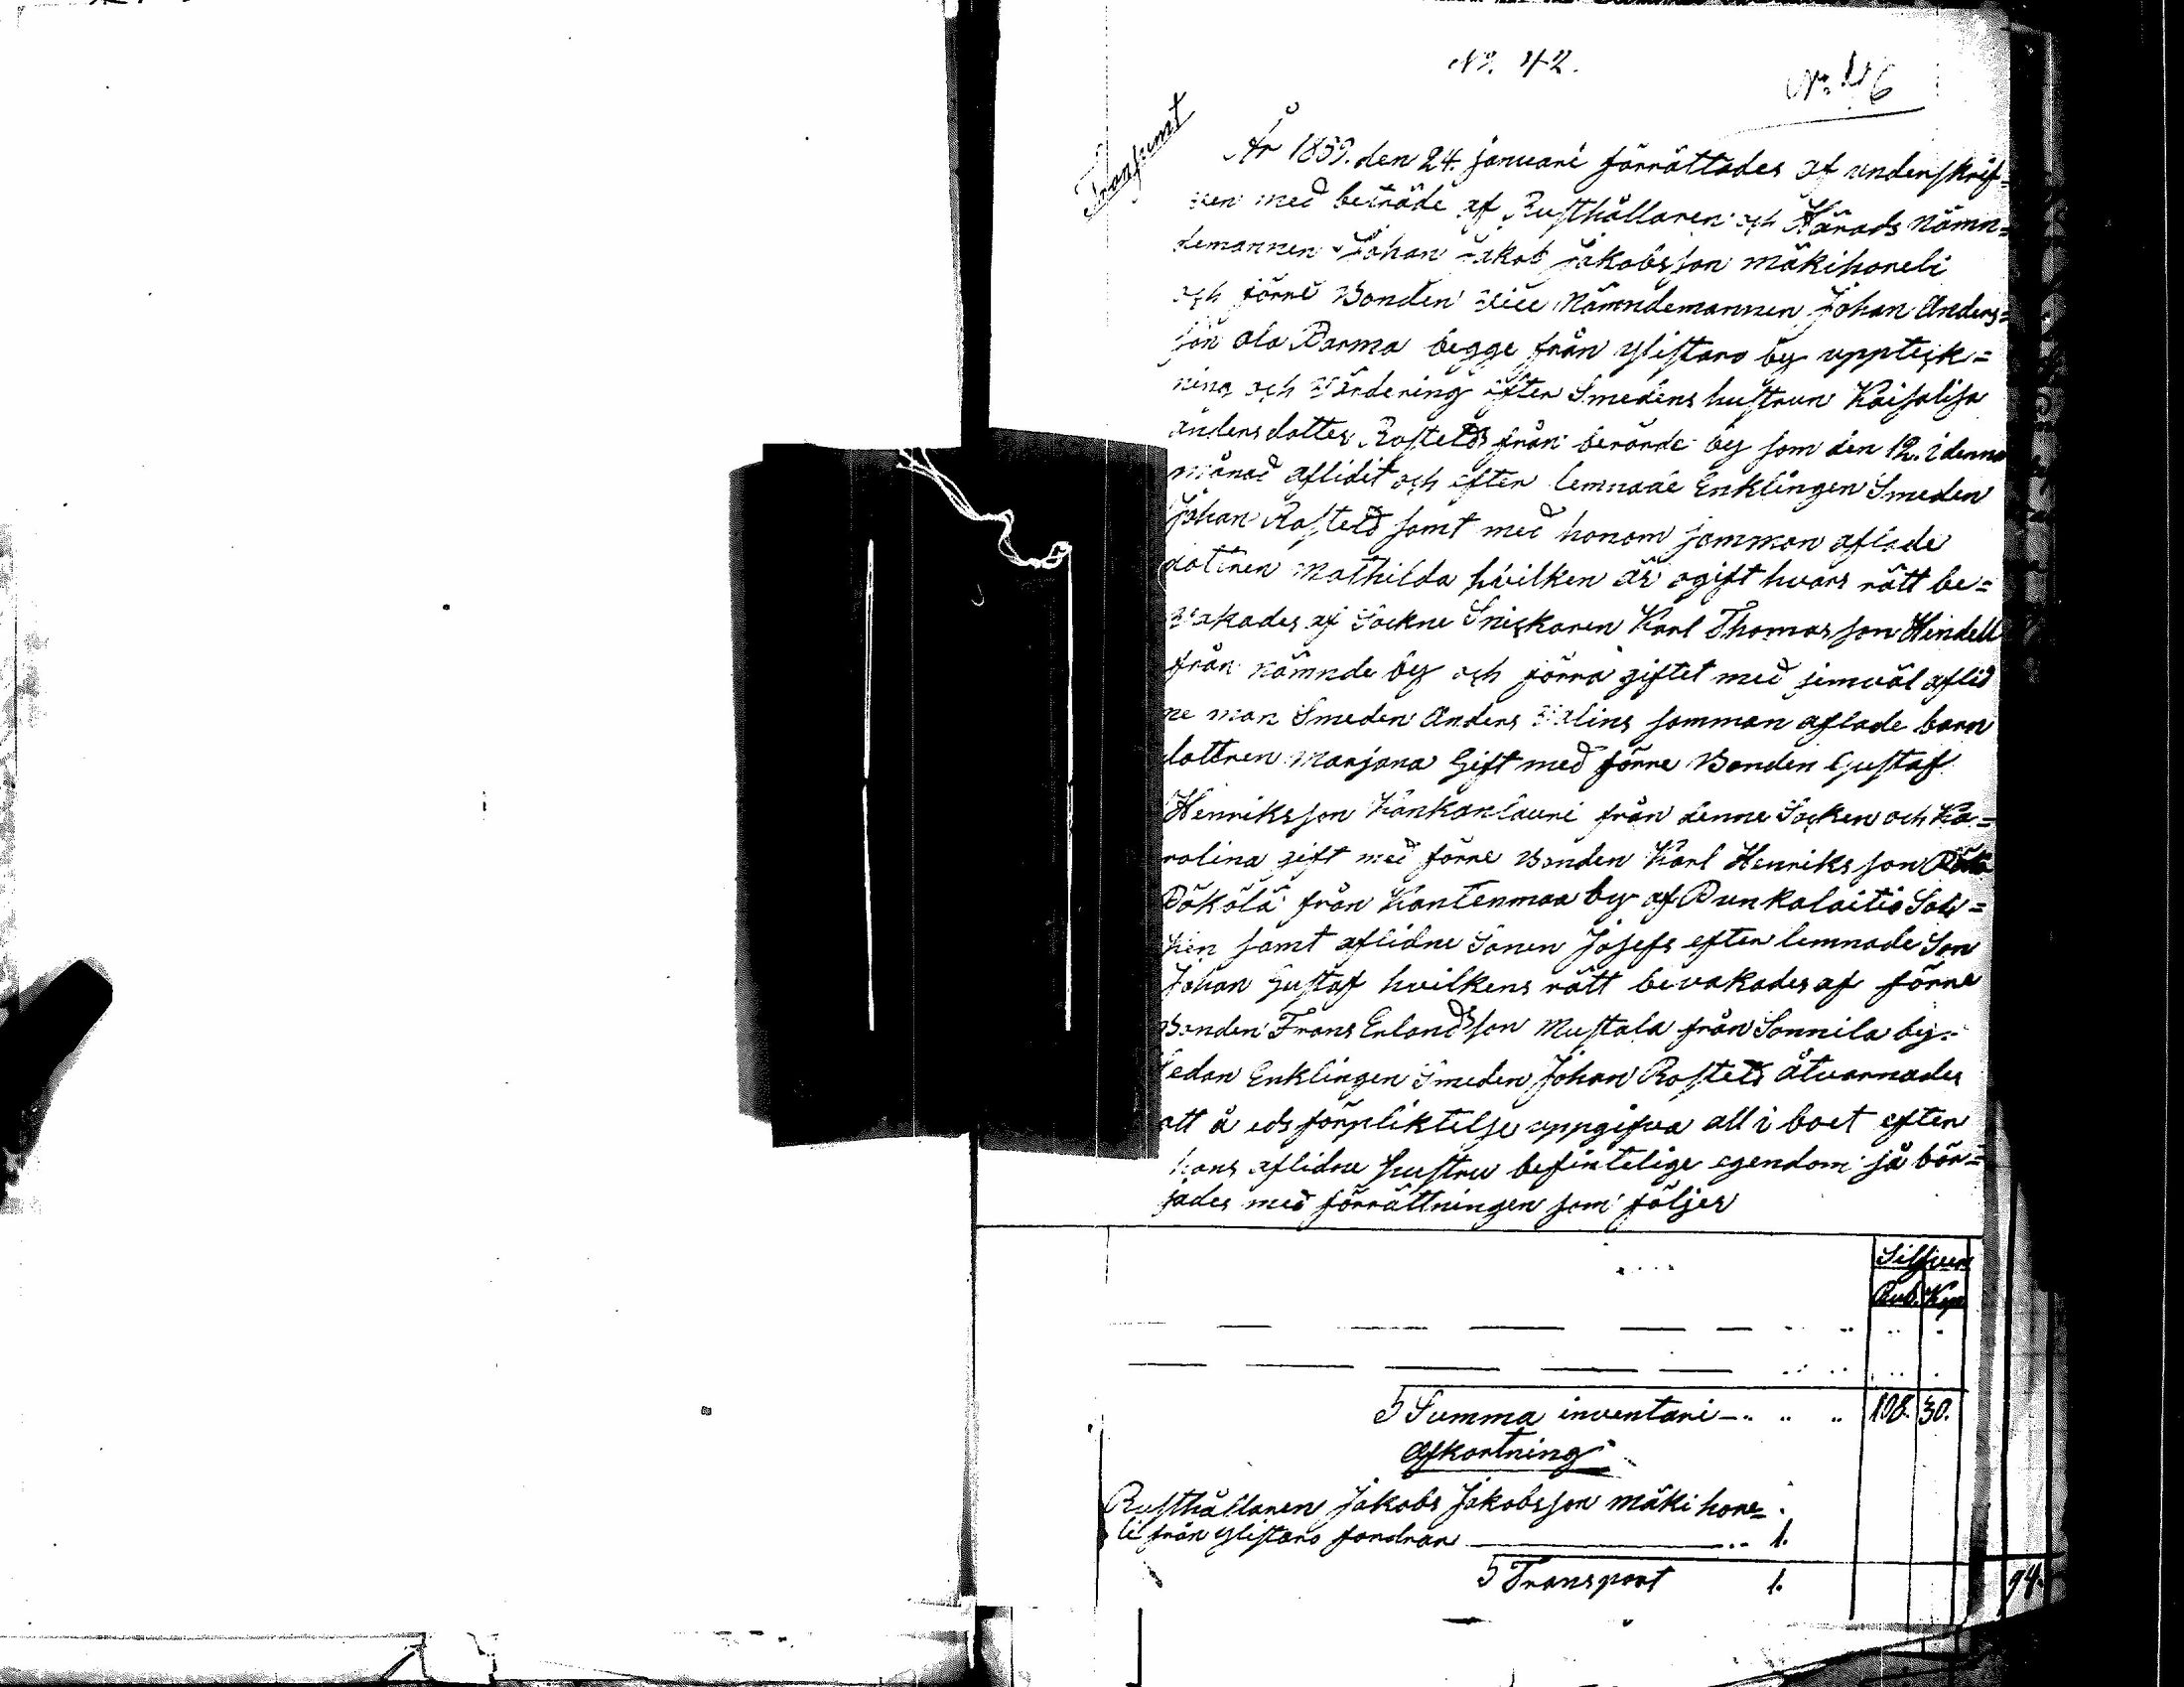 No. 42.
No. 46
Transsumt
År 1859. den 24. januari förrättades af underskrif=
ven med beträde af Rusthållaren och Härads Nämn=
demannen Johan Jakob Jakobsson mäkihoneli
och förre Bonden Vice Nämndemannen Johan Anders=
son ala Parma begge från ylistaro by uppteck=
ning och Värdering efter Smedens hustrun Kaisalisa
andersdotter Rostedt från berörde by som den 12. i denna
månad aflidit och efter lemnade Enklingen Smeden
Johan Rostedt samt med honom samman aflade
dottren Mathilda hvilken är ogift hvars rätt be=
vakades af Sockne Snickaren Karl Thomasson Hindell
från nämnde by och förra giftet med jemväl aflid
ne man Smeden Anders Valins samman aflade barn
dottren Marjana Gift med förre Bonden Gustaf
Henriksson Kankanlauri från denne Socken och Ka=
rolina gift med förre Bonden Karl Henriksson
Pökölä från Kantenmaa by af Punkalaitio Sok=
ken samt aflidne Sonen Josefs efter lemnade Son
Johan Gustaf hvilkens rätt bevakades af förre
Bonden Frans Erlandsson Mustala från Sonnila by.
Sedan Enklingen Smeden Johan Rostedt åtvarnades
att å eds förpliktelse uppgifva all i boet efter
hans aflidne hustru befintelige egendom så bör=
jades med förrättningen som följer
Silfver
Rub. Kop.
S Summa inventari 108. 30.
Afkortning
Rusthållaren Jakobs Jakobsson mäki hone=
li från ylistaro fordran 1.
S Transport 1.
94.